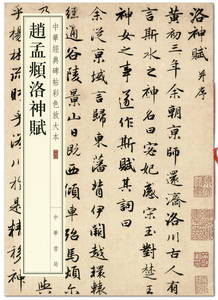 洛神賦 并序
黃初三年余朝京師還濟洛川古人有
言斯水之神名曰宓妃感宋玉對楚王
神女之事遂作斯賦其詞曰
余從京師言歸東藩背伊闕越轘轅
經通谷陵景山日既西傾車殆馬煩
中華經典碑帖彩色放大本
趙孟頫洛神賦
中華書局